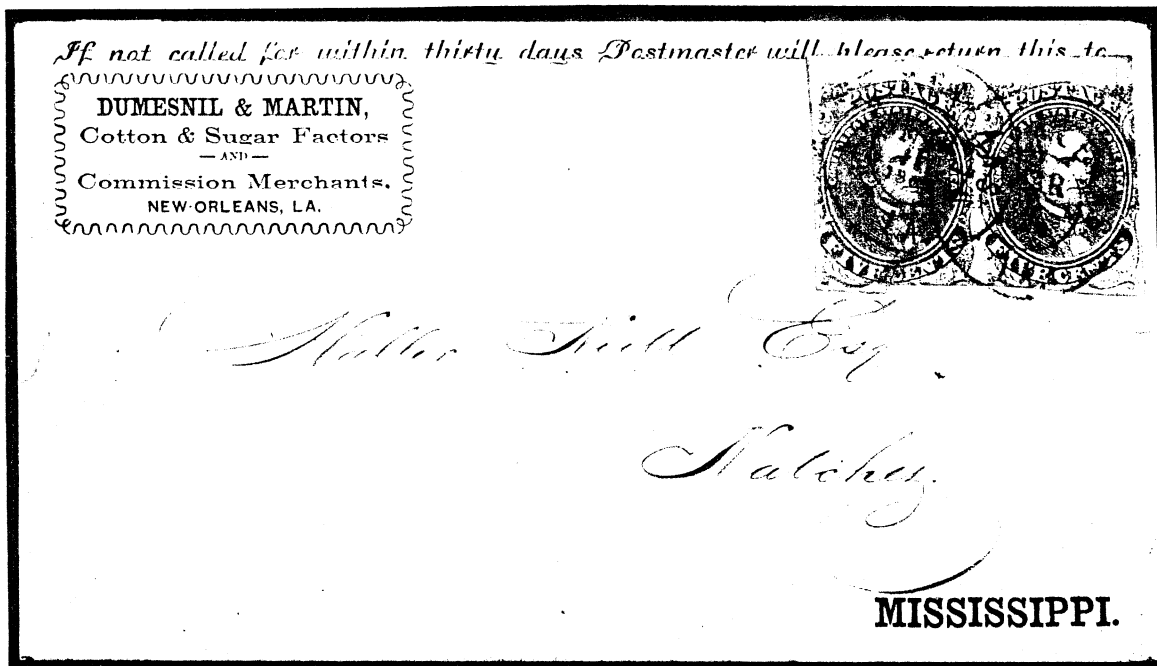 If not called for within thirty days Postmaster will please return this to
DUMESNIL & MARTIN,
Cotton & Sugar Factors
— AND —
Commission Merchants.
NEW-ORLEANS, LA.
FIVE CENTS
FIVE CENTS
Esq
Natchez.
MISSISSIPPI.